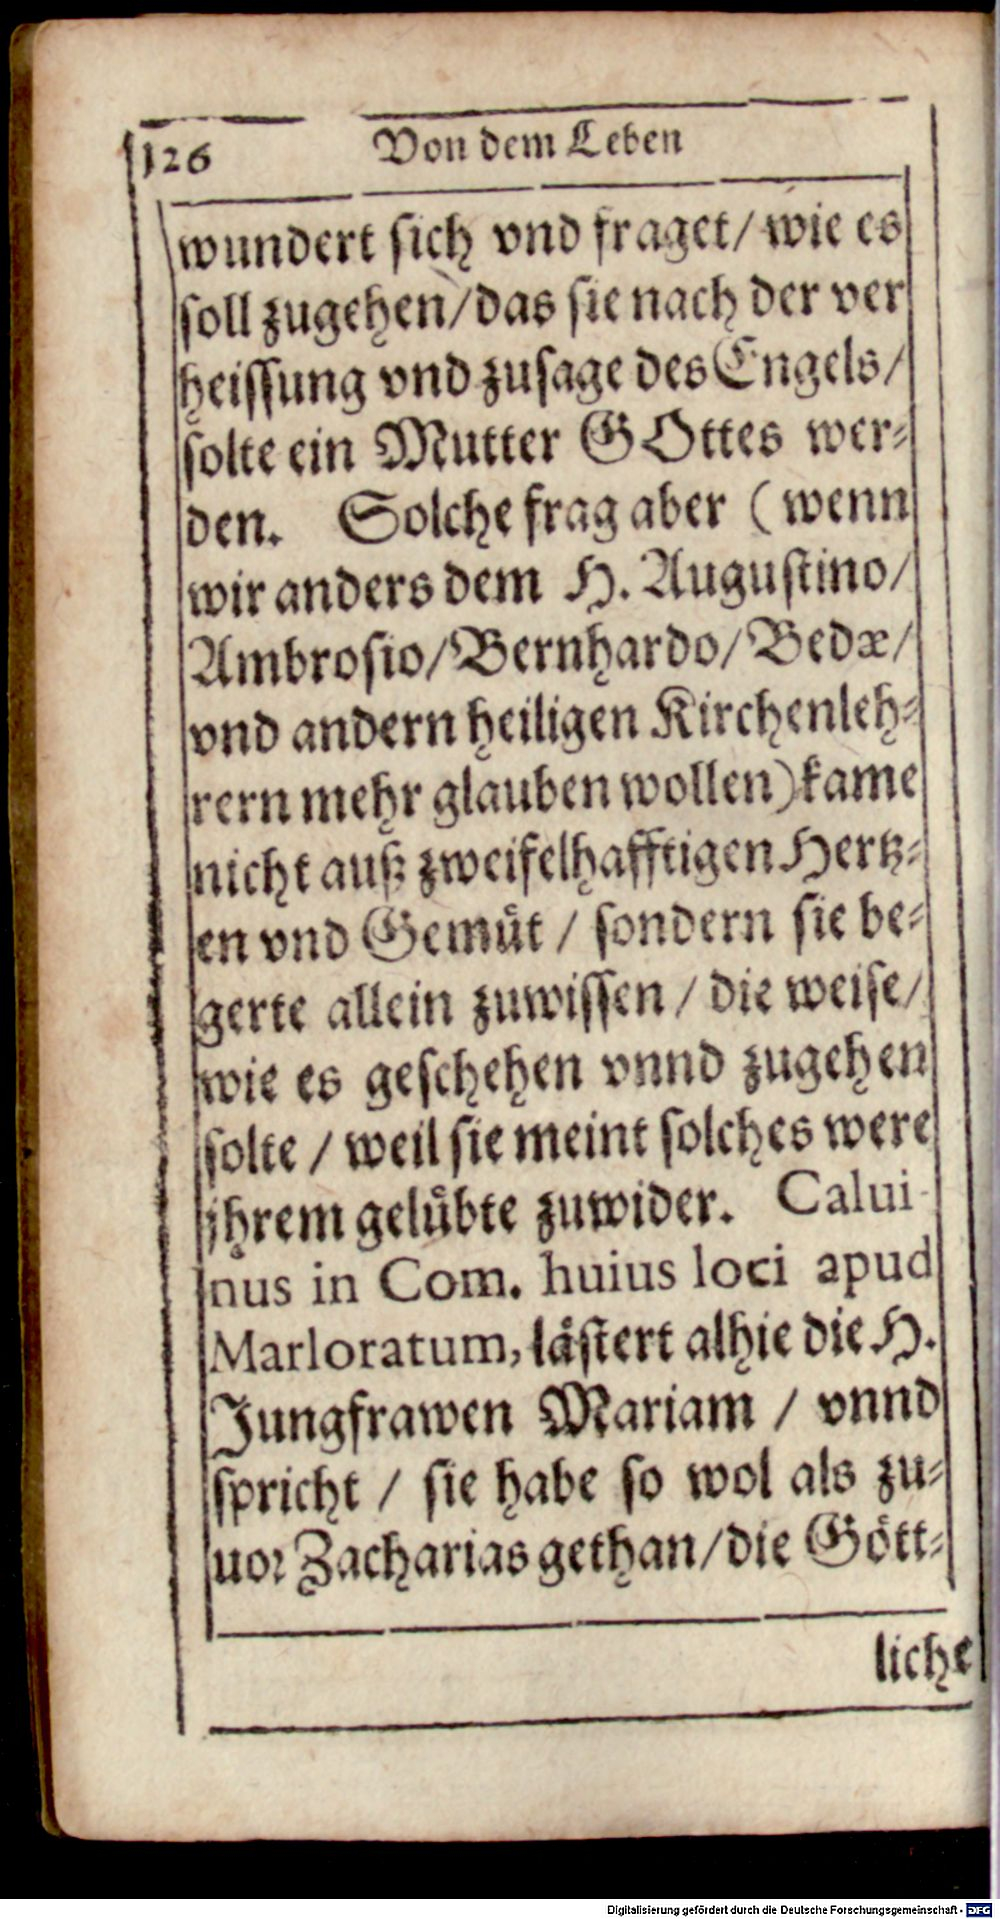 126 Von dem Leben
wundert sich vnd fraget/ wie es
soll zugehen/das sie nach der ver
heissung vnd zusage des Engels/
solte ein Mutter GOttes wer-
den. Solche frag aber (wenn
wir anders dem H. Augustino/
Ambrosio/Bernhardo/Bedæ/
vnd andern heiligen Kirchenleh-
rern mehr glauben wollen) kame
nicht auß zweifelhafftigen Hertz-
en vnd Gemüt / sondern sie be-
gerte allein zuwissen / die weise/
wie es geschehen vnnd zugehen
solte / weil sie meint solches were
jhrem gelübte zuwider. Calui-
nus in Com. huius loci apud
Marloratum, lästert alhie die H.
Jungfrawen Mariam / vnnd
spricht / sie habe so wol als zu-
uor Zacharias gethan/die Gött-
liche
Digitalisierung gefördert durch die Deutsche Forschungsgemeinschaft - DFG